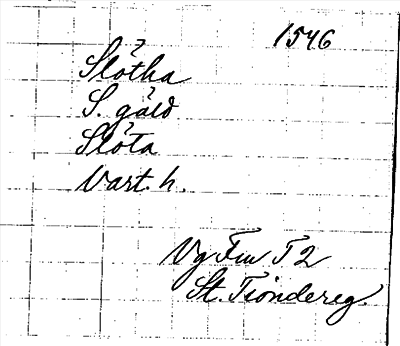 1546
Slötha
S. gård
Slöta
Vart. h.
Vg Fru T 2
St. Tiondereg.